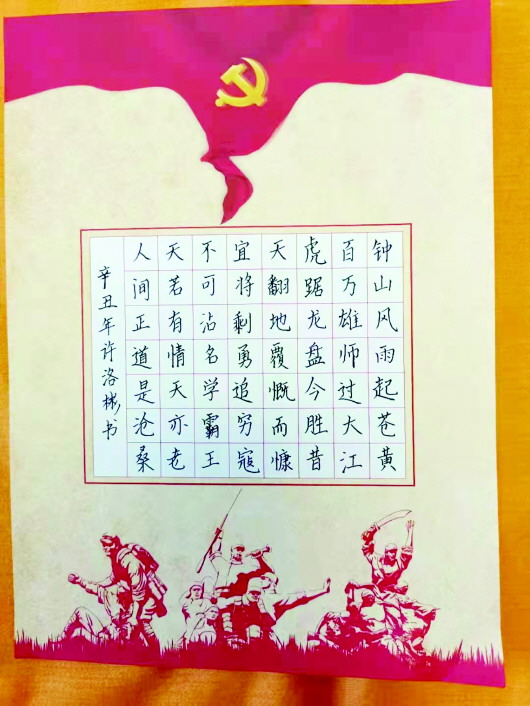 钟山风雨起苍黄
百万雄师过大江
虎踞龙盘今胜昔
天翻地覆慨而慷
宜将剩勇追穷寇
不可沾名学霸王
天若有情天亦老
人间正道是沧桑
辛丑年许洛彬书